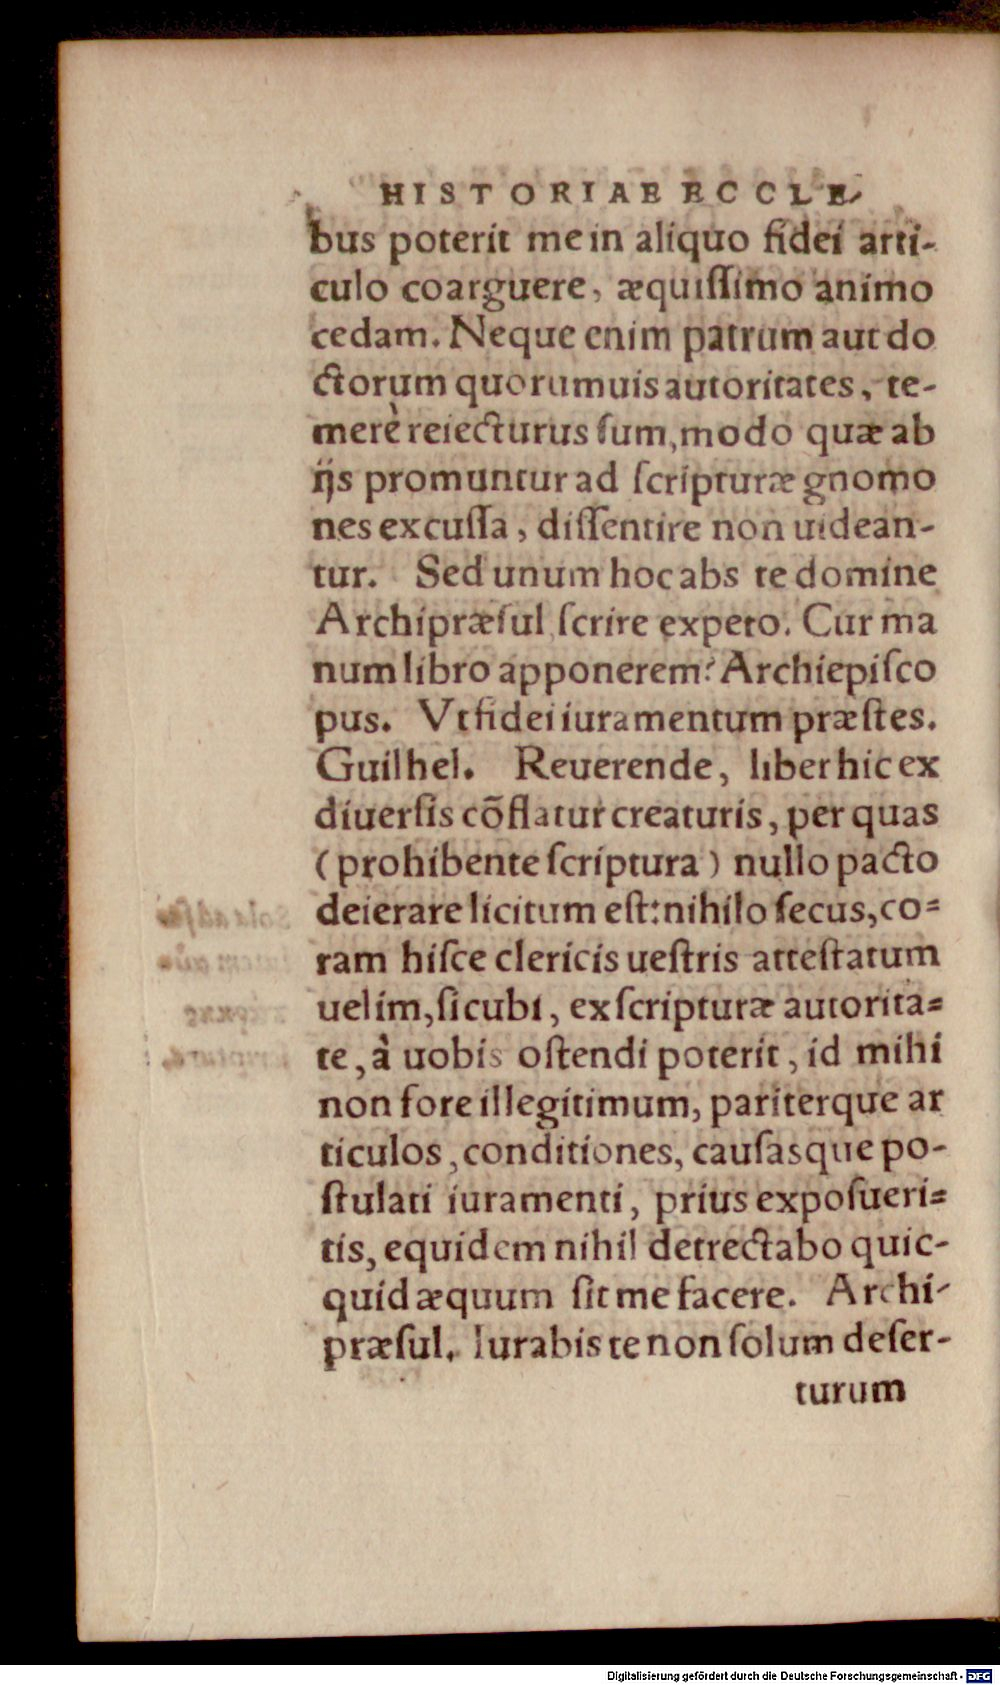 HISTORIAE ECCLE-
bus poterit me in aliquo fidei arti-
culo coarguere, æquiſſimo animo
cedam. Neque enim patrum aut do
ctorum quorumuis autoritates, te-
merè reiecturus ſum, modo quæ ab
ijs promuntur ad ſcripturæ gnomo
nes excuſſa, diſſentire non uidean-
tur. Sed unum hoc abs te domine
Archipræſul ſcrire expeto. Cur ma
num libro apponerem? Archiepiſco
pus. Vt fidei iuramentum præſtes.
Guilhel. Reuerende, liber hic ex
diuerſis cõflatur creaturis, per quas
(prohibente ſcriptura) nullo pacto
deierare licitum eſt: nihilo ſecus, co-
ram hiſce clericis ueſtris atteſtatum
uelim, ſicubi, ex ſcripturæ autorita-
te, à uobis oſtendi poterit, id mihi
non fore illegitimum, pariterque ar
ticulos, conditiones, cauſasque po-
ſtulati iuramenti, prius expoſueri-
tis, equidem nihil detrectabo quic-
quid æquum ſit me facere. Archi-
præſul. Iurabis te non ſolum deſer-
turum
Digitalisierung gefördert durch die Deutsche Forschungsgemeinschaft - DFG